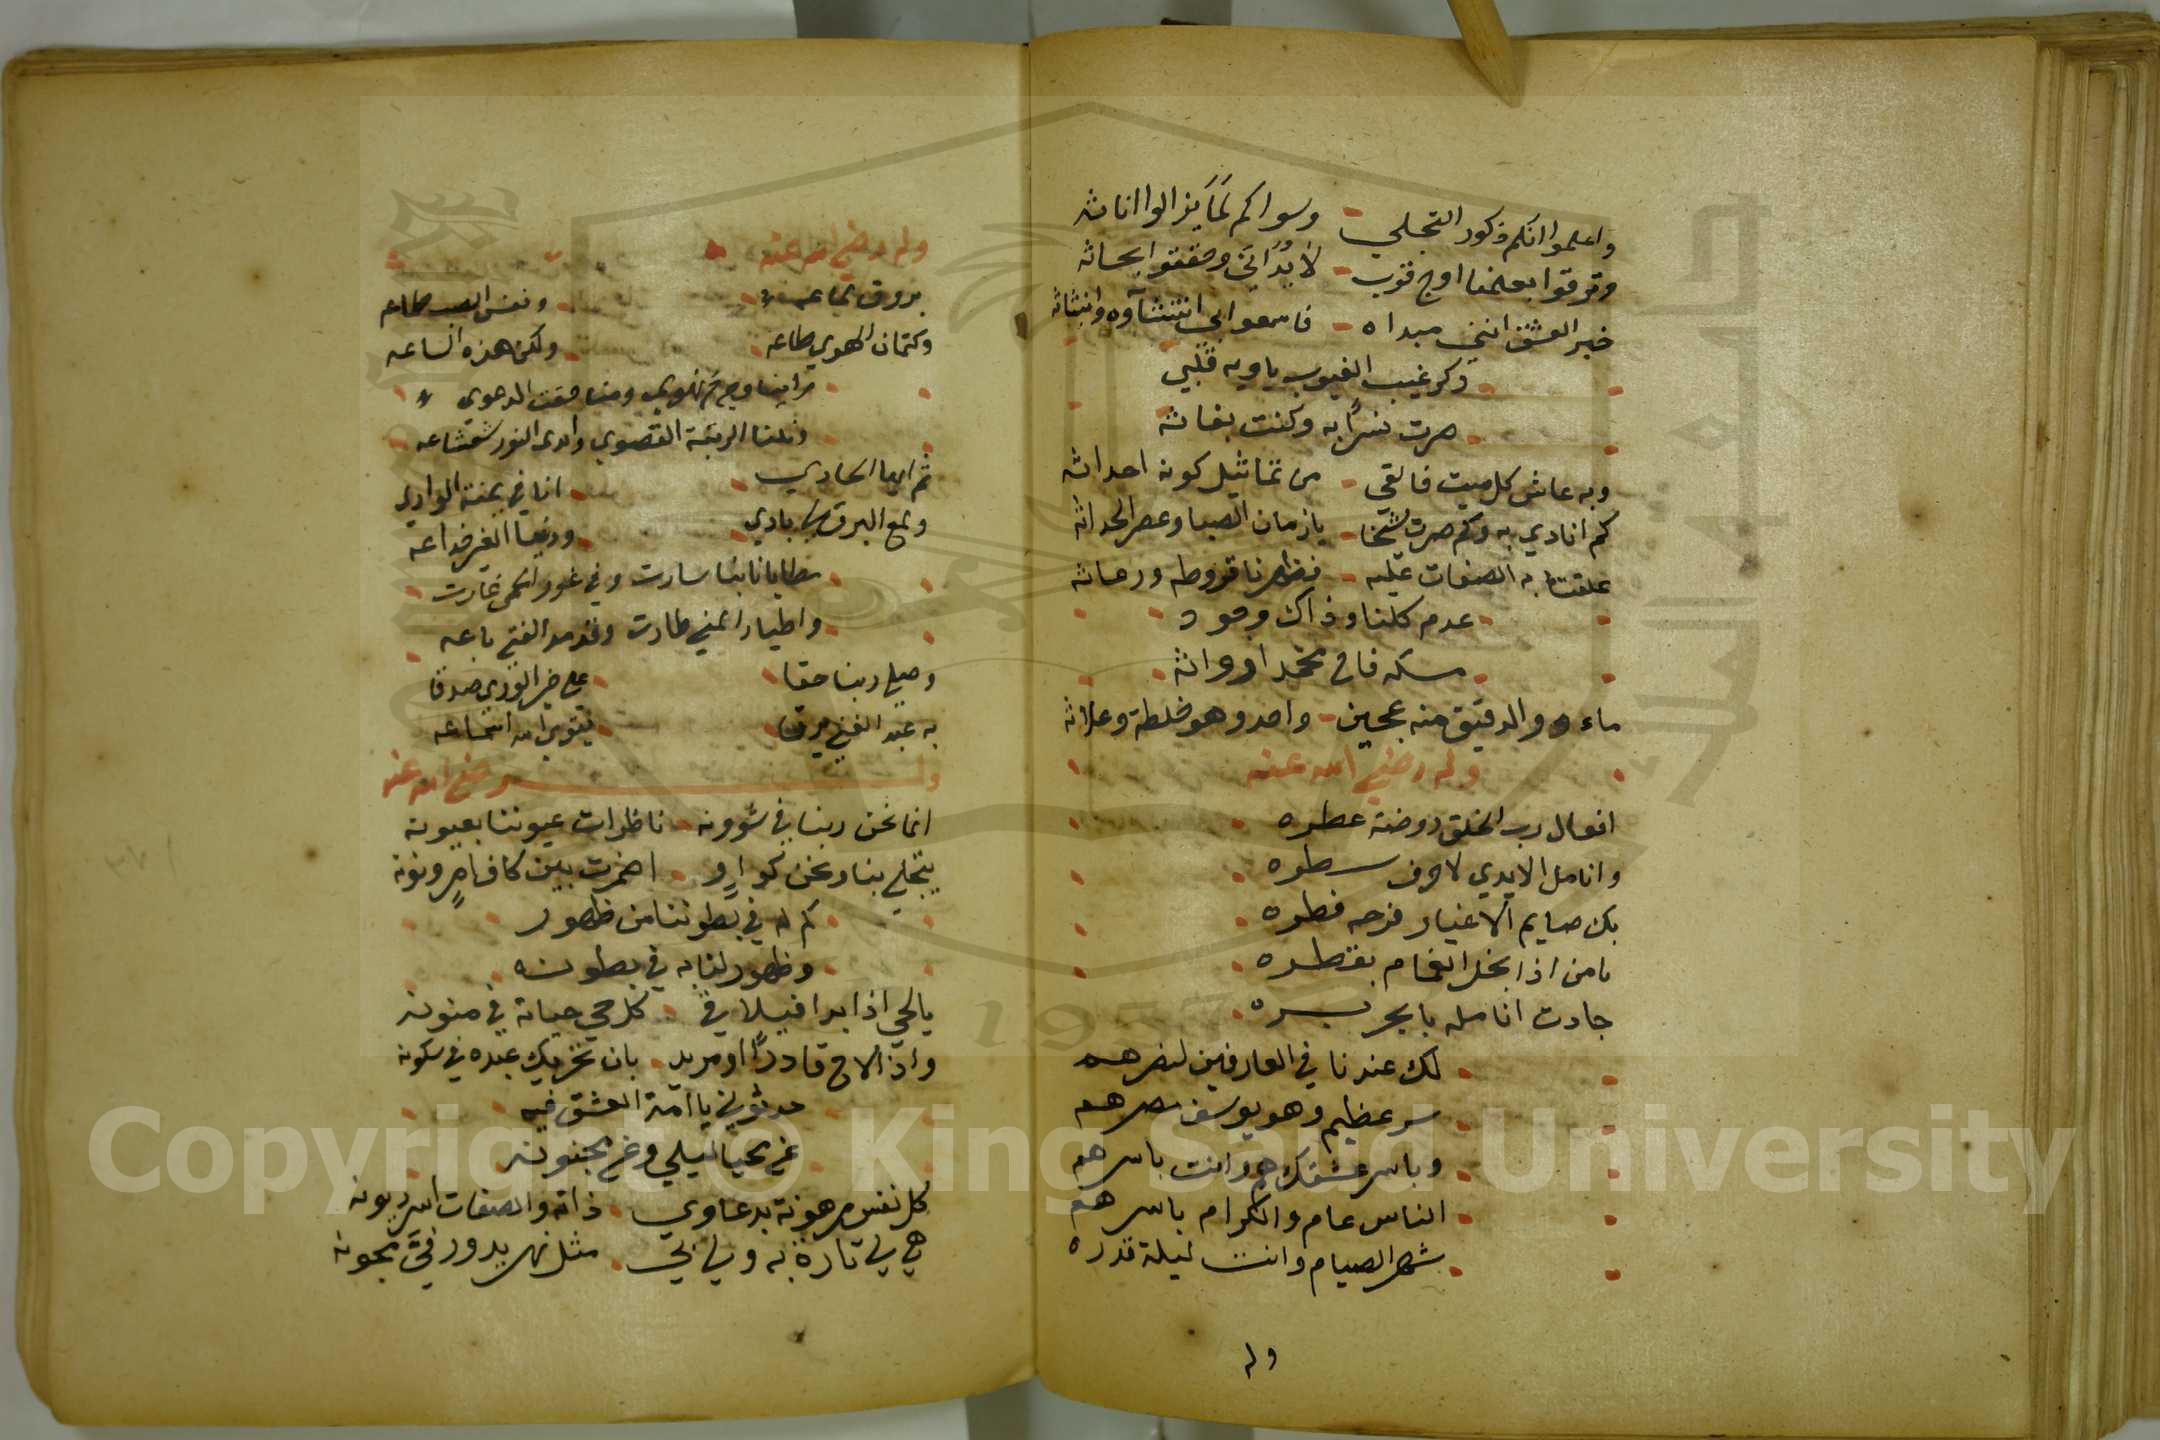 واعلموا انكم ذكور التجلي وسواكم لما يزالوا اناثه
وترقوا بعلمنا اوج قرب لا بداني وحققوا ابحاثه
خبر العشق انني مبداه فاسمعوا بي انتشآوه وانبثاثه
ذكر غيب الغيوب ياويه قلبي
صرت نسرًا به وكنت بغاثه
وبه عاش كل ميت فالقي من تماثيل كونه احداثه
كم انادي به وكم صرت شيخا يا زمان الصبا وعصر الحداثه
علقتنا به الصفات عليه فظهرنا قروطه ورعاثه
عدم كلنا وذاك وجود
مسكه فاح مخمدا ارواثه
ماءه والدقيق منه عجين واحد وهو خلطة وعلاثه
وله رضي الله عنه
افعال رب الخلق روضة عطره
وانامل الايدي لاحرف سطره
بك صايم الاغيار فرحه فطره
يا من اذا بخل الغمام بقطره
جادت انامله بابحر بره
لك عندنا في العارفين لنصرهم
سر عظيم وهو يوسف مصرهم
وباسر عشقك هم وانت باسرهم
الناس عام والكرام باسرهم
شهر الصيام وانت ليلة قدره
وله
وله رضي الله عنه
بروق لماعه ونفس الصب طماعه
وكتمان الهوي طاعه ولكن هذه الساعه
راينا وجه من نهوي ومنا حقت الدعوي
ونلنا الرتبة القصوي وابدى النور شعشاعه
قم ايها الحادي انا في يمنة الوادي
ولمع البرق لي بادي ودنيا الغير خداعه
مطايانا بنا سارت وفي غور الحمى غارت
واطيار المني طارت وقد مد الفتى باعه
وصلي ربنا حقا على خير الوري صدقا
به عبد الغني يرقا بتقوى الله اتباعه
وله رضي الله عنه
انما نحن ربنا في شوونه ناظرات عيوننا بعيونه
يتجلي بنا ونحن كواو اضمرت بين كاف امرٍ ونونه
كم له في بطوننا من ظهور
وظهور لنا به في بطونه
يا لحي اذا بدا فيلاقي كل حي حياته في منونه
واذا لاح قادرًا او مريد بان تحريك عبده في سكونه
حدثوني يا امة العشق فيه
عن محيا ليلي وعن مجنونه
كل نفس مرهونة بدعاوي ذاته والصفات اسر ديونه
هي لي تارة به ولي بي مثل نهر يدور في مجونه
Copyright © King Saud University
1957